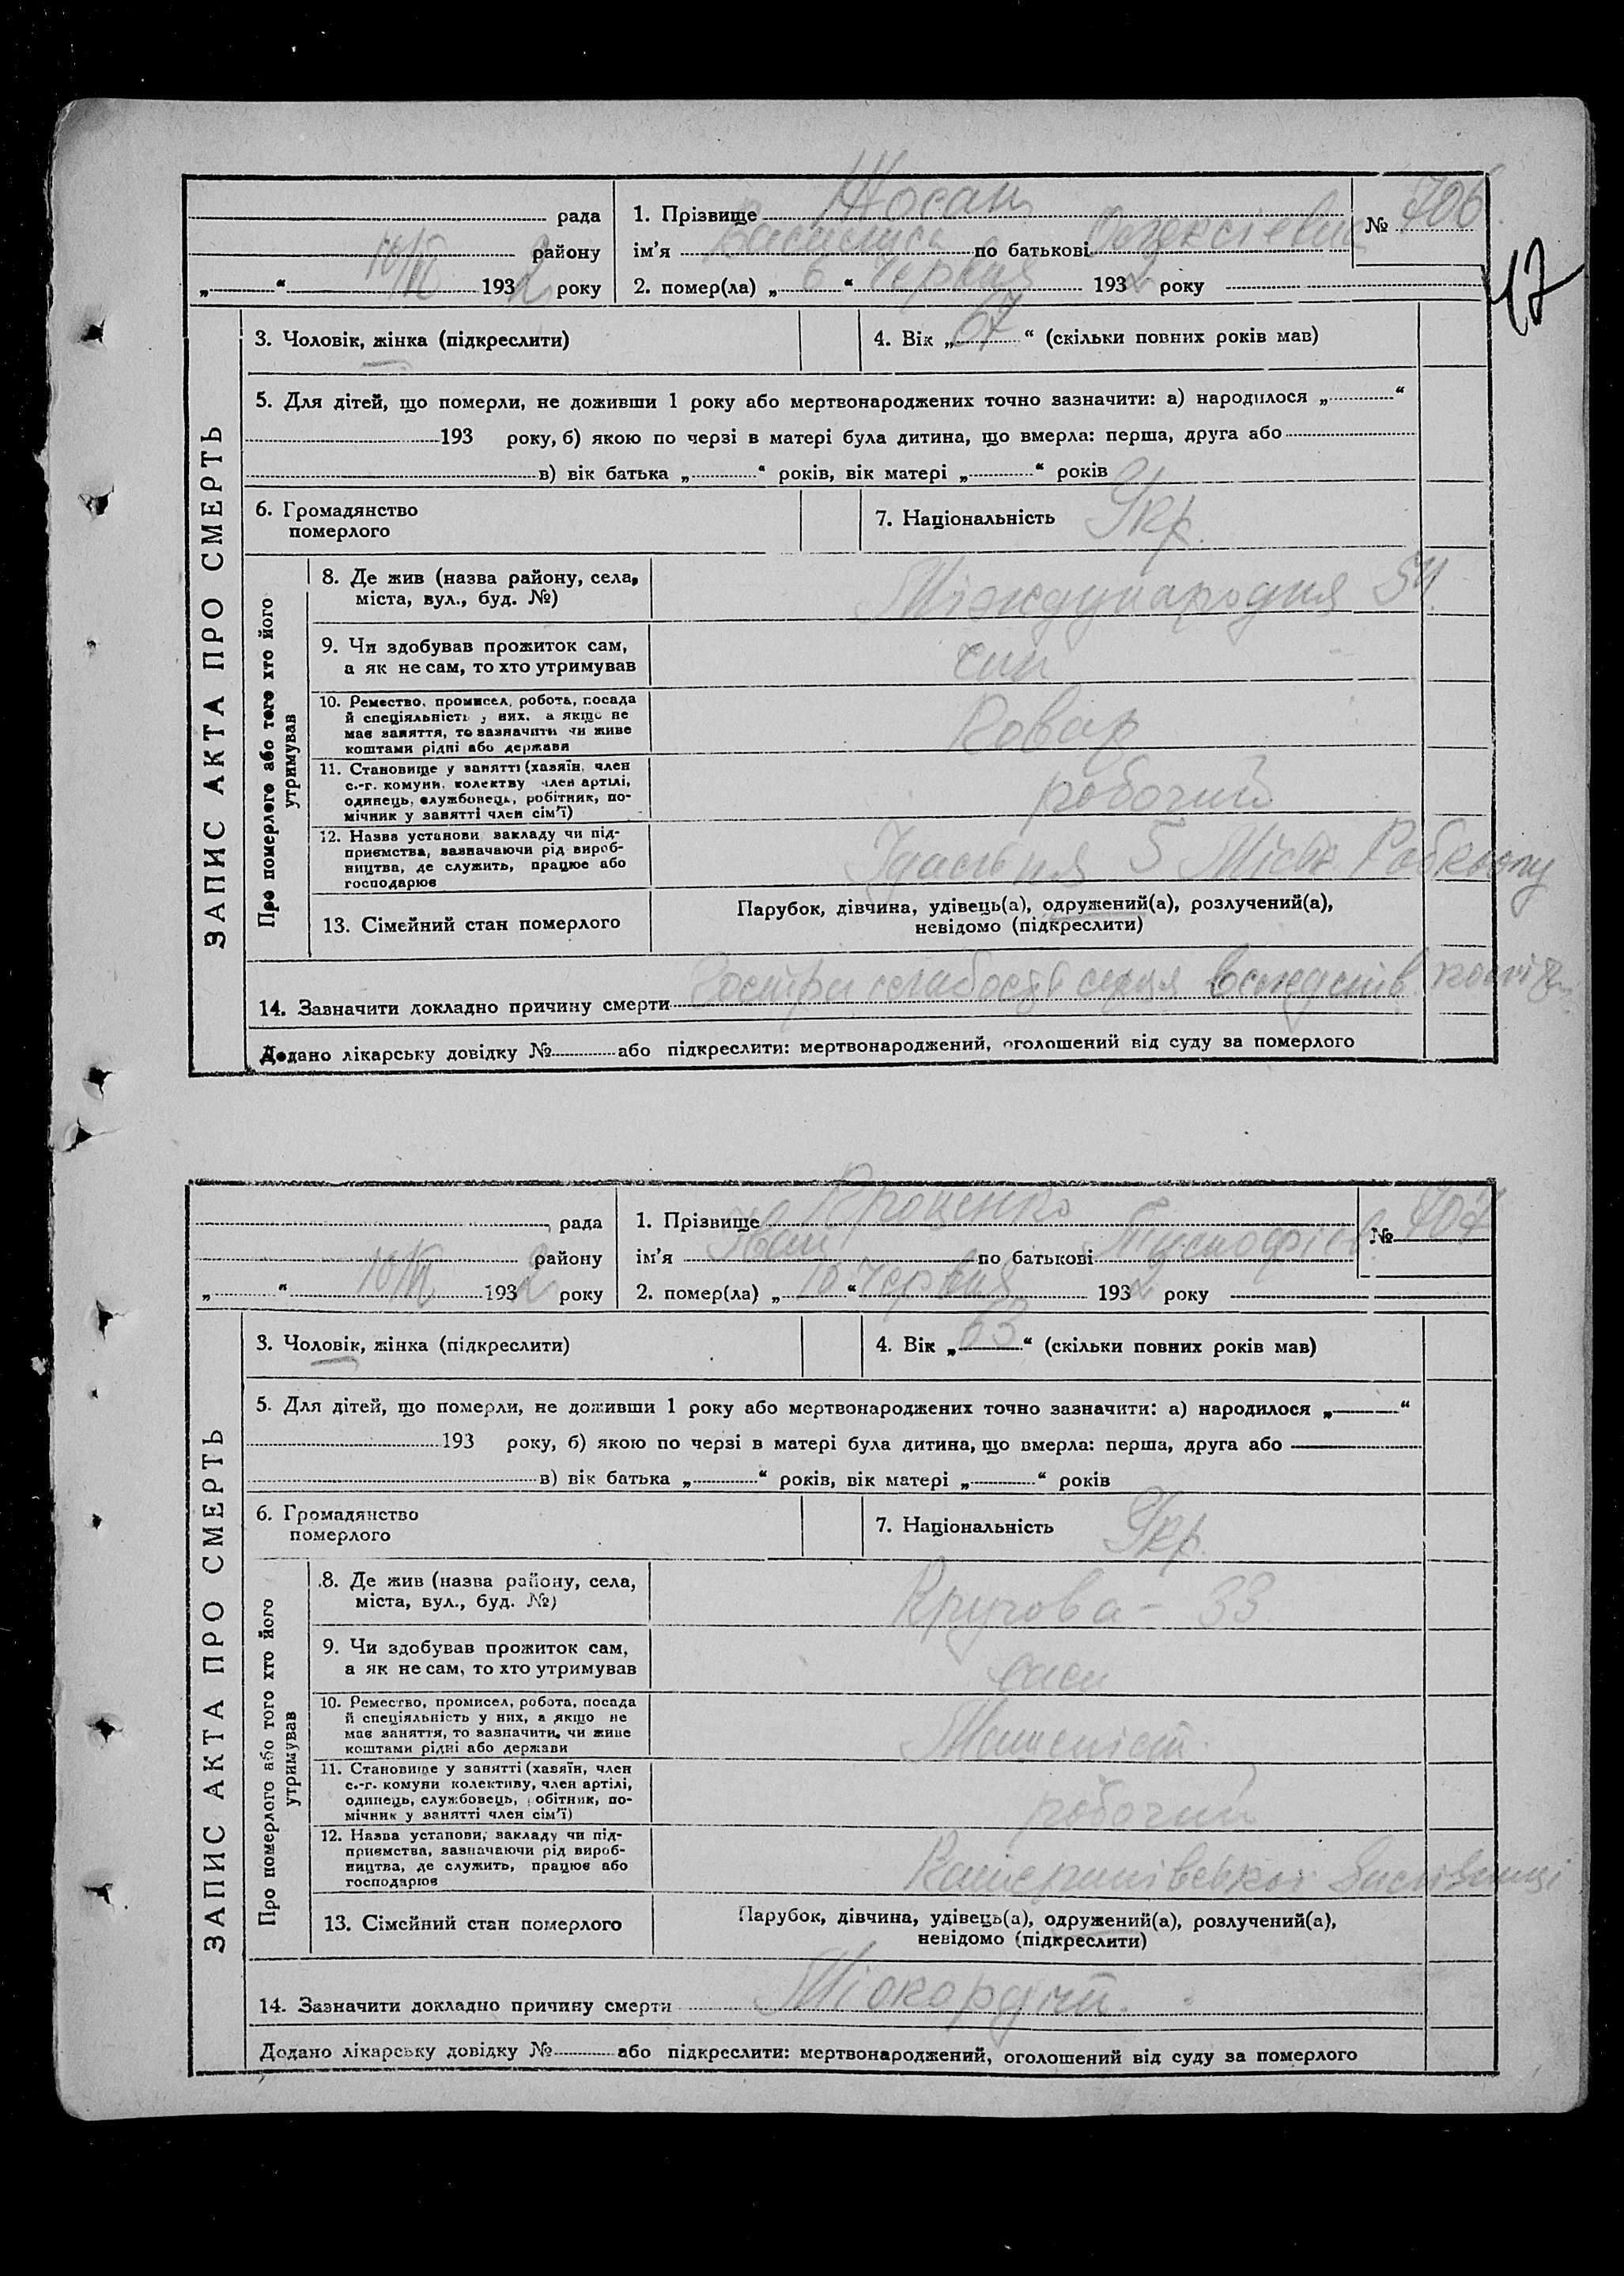 ЗАПИС АКТА ПРО СМЕРТЬ
рада
району
10/VI 1932 року
1. Прізвище Жосан
№ 706
ім'я Василиса по батькові Олексіевна
2. помер(ла) „6“ Червня 1932 року
17
3. Чоловік, жінка (підкреслити)
4. Вік „67“ (скільки повних років мав)
5. Для дітей, що померли, не доживши 1 року або мертвонароджених точно зазначити: а) народилося „ “
193 року, б) якою по черзі в матері була дитина, що вмерла: перша, друга або
в) вік батька „ “ років, вік матері „ “ років
6. Громадянство
померлого
7. Національність Укр.
Про померлого або того хто його
утримував
8. Де жив (назва району, села,
міста, вул., буд. №)
Міждународня 54
9. Чи здобував прожиток сам,
а як не сам, то хто утримував
син
10. Ремество, промисел, робота, посада
й спеціяльність у них, а якщо не
має заняття, то зазначити чи живе
коштами рідні або держави
Повар
11. Становище у занятті (хазяїн, член
с.-г. комуни, колективу член артілі,
одинець, службовець, робітник, по-
мічник у занятті член сім'ї)
робочий
12. Назва установи закладу чи під-
приємства, зазначаючи рід вироб-
ництва, де служить, працює або
господарює
Їдальня 5 Міськ Робкоопу
13. Сімейний стан померлого
Парубок, дівчина, удівець(а), одружений(а), розлучений(а),
невідомо (підкреслити)
14. Зазначити докладно причину смерти слабость серця вследств.
Додано лікарську довідку № або підкреслити: мертвонароджений, оголошений від суду за померлого
ЗАПИС АКТА ПРО СМЕРТЬ
рада
району
10/VI 1932 року
1. Прізвище Проценко
№ 707
ім'я Іван по батькові
2. помер(ла) „10“ Червня 1932 року
3. Чоловік, жінка (підкреслити)
4. Вік „63“ (скільки повних років мав)
5. Для дітей, що померли, не доживши 1 року або мертвонароджених точно зазначити: а) народилося „ “
193 року, б) якою по черзі в матері була дитина, що вмерла: перша, друга або
в) вік батька „ “ років, вік матері „ “ років
6. Громадянство
померлого
7. Національність Укр.
Про померлого або того хто його
утримував
8. Де жив (назва району, села,
міста, вул., буд. №)
33
9. Чи здобував прожиток сам,
а як не сам, то хто утримував
сам
10. Ремество, промисел, робота, посада
й спеціяльність у них, а якщо не
має заняття, то зазначити, чи живе
коштами рідні або держави
Машеніст
11. Становище у занятті (хазяїн, член
с.-г. комуни колективу, член артілі,
одинець, службовець, робітник, по-
мічник у занятті член сім'ї)
робочий
12. Назва установи, закладу чи під-
приємства, зазначаючи рід вироб-
ництва, де служить, працює або
господарює
Катеринівської
13. Сімейний стан померлого
Парубок, дівчина, удівець(а), одружений(а), розлучений(а),
невідомо (підкреслити)
14. Зазначити докладно причину смерти Міокордит.
Додано лікарську довідку № або підкреслити: мертвонароджений, оголошений від суду за померлого